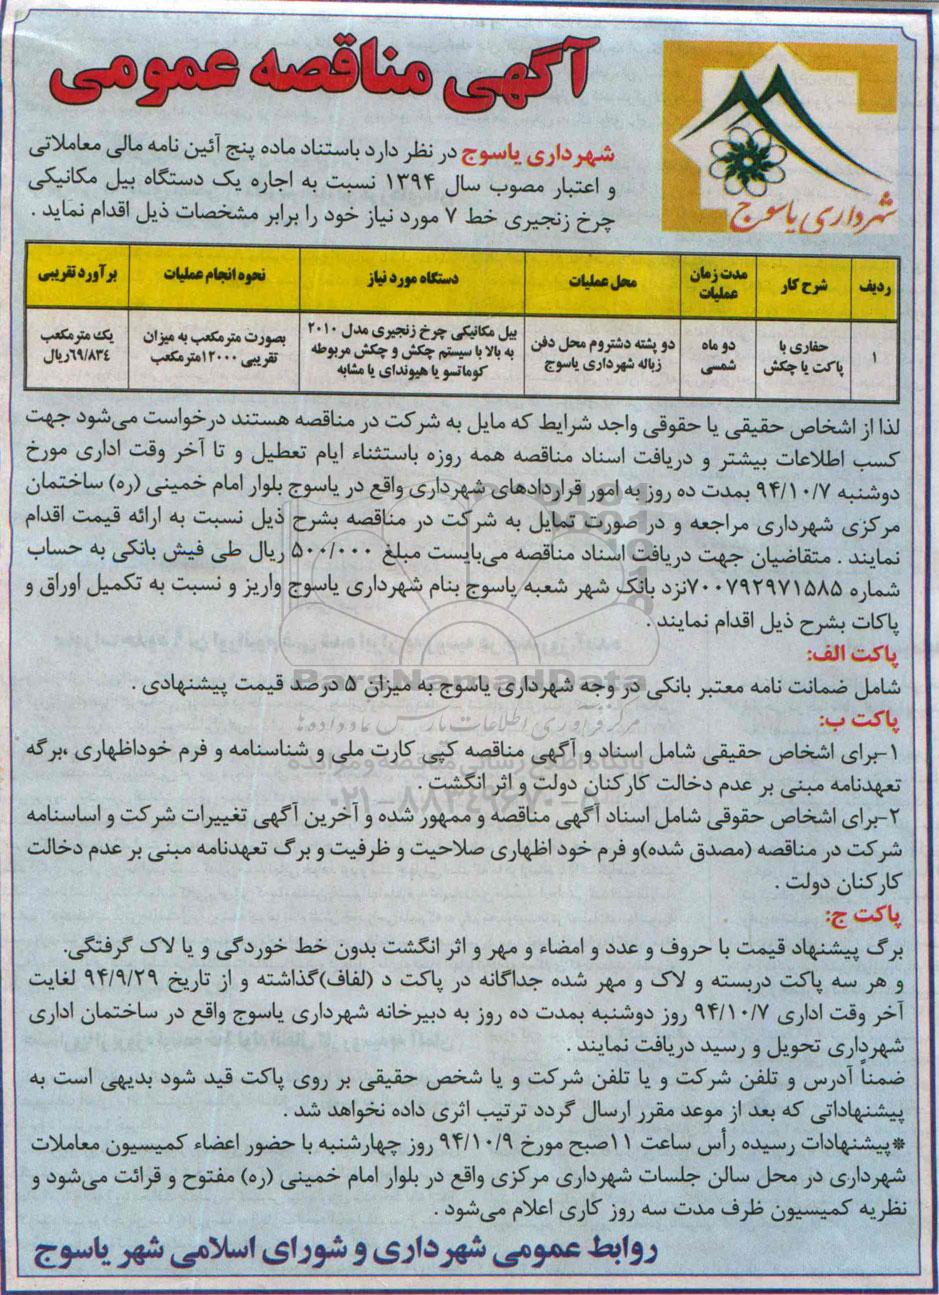 آگهی مناقصه عمومی
شهرداری یاسوج
شهرداری یاسوج در نظر دارد باستناد ماده پنج آئین نامه مالی معاملاتی
و اعتبار مصوب سال ۱۳۹۴ نسبت به اجاره یک دستگاه بیل مکانیکی
چرخ زنجیری خط ۷ مورد نیاز خود را برابر مشخصات ذیل اقدام نماید .
ردیف | شرح کار | مدت زمان عملیات | محل عملیات | دستگاه مورد نیاز | نحوه انجام عملیات | برآورد تقریبی
۱ | حفاری با پاکت یا چکش | دو ماه شمسی | دو پشته دشتروم محل دفن زباله شهرداری یاسوج | بیل مکانیکی چرخ زنجیری مدل ۲۰۱۰ به بالا با سیستم چکش و چکش مربوطه کوماتسو یا هیوندای یا مشابه | بصورت مترمکعب به میزان تقریبی ۱۲۰۰۰مترمکعب | یک مترمکعب ۶۹/۸۳۴ریال
لذا از اشخاص حقیقی یا حقوقی واجد شرایط که مایل به شرکت در مناقصه هستند درخواست می‌شود جهت
کسب اطلاعات بیشتر و دریافت اسناد مناقصه همه روزه باستثناء ایام تعطیل و تا آخر وقت اداری مورخ
دوشنبه ۹۴/۱۰/۷ بمدت ده روز به امور قراردادهای شهرداری واقع در یاسوج بلوار امام خمینی (ره) ساختمان
مرکزی شهرداری مراجعه و در صورت تمایل به شرکت در مناقصه بشرح ذیل نسبت به ارائه قیمت اقدام
نمایند . متقاضیان جهت دریافت اسناد مناقصه می‌بایست مبلغ ۵۰۰/۰۰۰ ریال طی فیش بانکی به حساب
شماره ۷۰۰۷۹۲۹۷۱۵۸۵نزد بانک شهر شعبه یاسوج بنام شهرداری یاسوج واریز و نسبت به تکمیل اوراق و
پاکات بشرح ذیل اقدام نمایند .
پاکت الف:
شامل ضمانت نامه معتبر بانکی در وجه شهرداری یاسوج به میزان ۵ درصد قیمت پیشنهادی .
پاکت ب:
۱-برای اشخاص حقیقی شامل اسناد و آگهی مناقصه کپی کارت ملی و شناسنامه و فرم خوداظهاری ،برگه
تعهدنامه مبنی بر عدم دخالت کارکنان دولت و اثر انگشت .
۲-برای اشخاص حقوقی شامل اسناد آگهی مناقصه و ممهور شده و آخرین آگهی تغییرات شرکت و اساسنامه
شرکت در مناقصه (مصدق شده)و فرم خود اظهاری صلاحیت و ظرفیت و برگ تعهدنامه مبنی بر عدم دخالت
کارکنان دولت .
پاکت ج:
برگ پیشنهاد قیمت با حروف و عدد و امضاء و مهر و اثر انگشت بدون خط خوردگی و یا لاک گرفتگی.
و هر سه پاکت دربسته و لاک و مهر شده جداگانه در پاکت د (لفاف)گذاشته و از تاریخ ۹۴/۹/۲۹ لغایت
آخر وقت اداری ۹۴/۱۰/۷ روز دوشنبه بمدت ده روز به دبیرخانه شهرداری یاسوج واقع در ساختمان اداری
شهرداری تحویل و رسید دریافت نمایند .
ضمناً آدرس و تلفن شرکت و یا تلفن شرکت و یا شخص حقیقی بر روی پاکت قید شود بدیهی است به
پیشنهاداتی که بعد از موعد مقرر ارسال گردد ترتیب اثری داده نخواهد شد .
*پیشنهادات رسیده رأس ساعت ۱۱صبح مورخ ۹۴/۱۰/۹ روز چهارشنبه با حضور اعضاء کمیسیون معاملات
شهرداری در محل سالن جلسات شهرداری مرکزی واقع در بلوار امام خمینی (ره) مفتوح و قرائت می‌شود و
نظریه کمیسیون ظرف مدت سه روز کاری اعلام می‌شود .
روابط عمومی شهرداری و شورای اسلامی شهر یاسوج
ParsNamadData